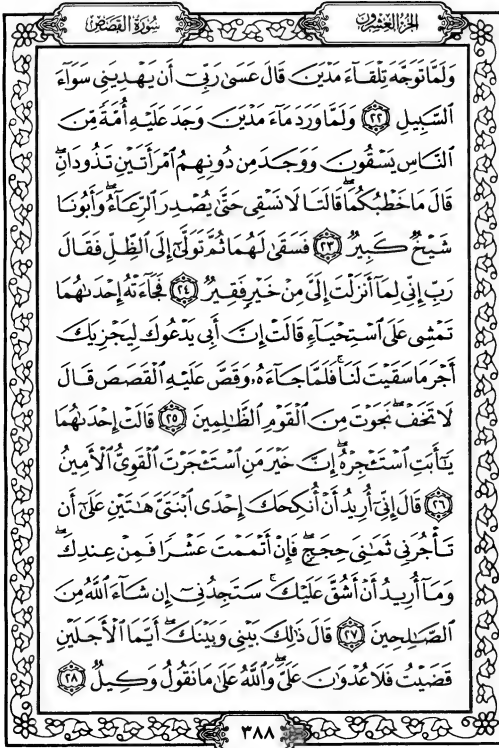 الجزء العشرون
سورة القصص
وَلَمَّا تَوَجَّهَ تِلْقَآءَ مَدْيَنَ قَالَ عَسَىٰ رَبِّىٓ أَن يَهْدِيَنِى سَوَآءَ
ٱلسَّبِيلِ ﴿٢٢﴾ وَلَمَّا وَرَدَ مَآءَ مَدْيَنَ وَجَدَ عَلَيْهِ أُمَّةً مِّنَ
ٱلنَّاسِ يَسْقُونَ وَوَجَدَ مِن دُونِهِمُ ٱمْرَأَتَيْنِ تَذُودَانِ ۖ
قَالَ مَا خَطْبُكُمَا ۖ قَالَتَا لَا نَسْقِى حَتَّىٰ يُصْدِرَ ٱلرِّعَآءُ ۖ وَأَبُونَا
شَيْخٌ كَبِيرٌ ﴿٢٣﴾ فَسَقَىٰ لَهُمَا ثُمَّ تَوَلَّىٰٓ إِلَى ٱلظِّلِّ فَقَالَ
رَبِّ إِنِّى لِمَآ أَنزَلْتَ إِلَىَّ مِنْ خَيْرٍ فَقِيرٌ ﴿٢٤﴾ فَجَآءَتْهُ إِحْدَىٰهُمَا
تَمْشِى عَلَى ٱسْتِحْيَآءٍ قَالَتْ إِنَّ أَبِى يَدْعُوكَ لِيَجْزِيَكَ
أَجْرَ مَا سَقَيْتَ لَنَا ۚ فَلَمَّا جَآءَهُۥ وَقَصَّ عَلَيْهِ ٱلْقَصَصَ قَالَ
لَا تَخَفْ ۖ نَجَوْتَ مِنَ ٱلْقَوْمِ ٱلظَّٰلِمِينَ ﴿٢٥﴾ قَالَتْ إِحْدَىٰهُمَا
يَٰٓأَبَتِ ٱسْتَـْٔجِرْهُ ۖ إِنَّ خَيْرَ مَنِ ٱسْتَـْٔجَرْتَ ٱلْقَوِىُّ ٱلْأَمِينُ
﴿٢٦﴾ قَالَ إِنِّىٓ أُرِيدُ أَنْ أُنكِحَكَ إِحْدَى ٱبْنَتَىَّ هَٰتَيْنِ عَلَىٰٓ أَن
تَأْجُرَنِى ثَمَٰنِىَ حِجَجٍ ۖ فَإِنْ أَتْمَمْتَ عَشْرًا فَمِنْ عِندِكَ ۖ
وَمَآ أُرِيدُ أَنْ أَشُقَّ عَلَيْكَ ۚ سَتَجِدُنِىٓ إِن شَآءَ ٱللَّهُ مِنَ
ٱلصَّٰلِحِينَ ﴿٢٧﴾ قَالَ ذَٰلِكَ بَيْنِى وَبَيْنَكَ ۖ أَيَّمَا ٱلْأَجَلَيْنِ
قَضَيْتُ فَلَا عُدْوَٰنَ عَلَىَّ ۖ وَٱللَّهُ عَلَىٰ مَا نَقُولُ وَكِيلٌ ﴿٢٨﴾
٣٨٨